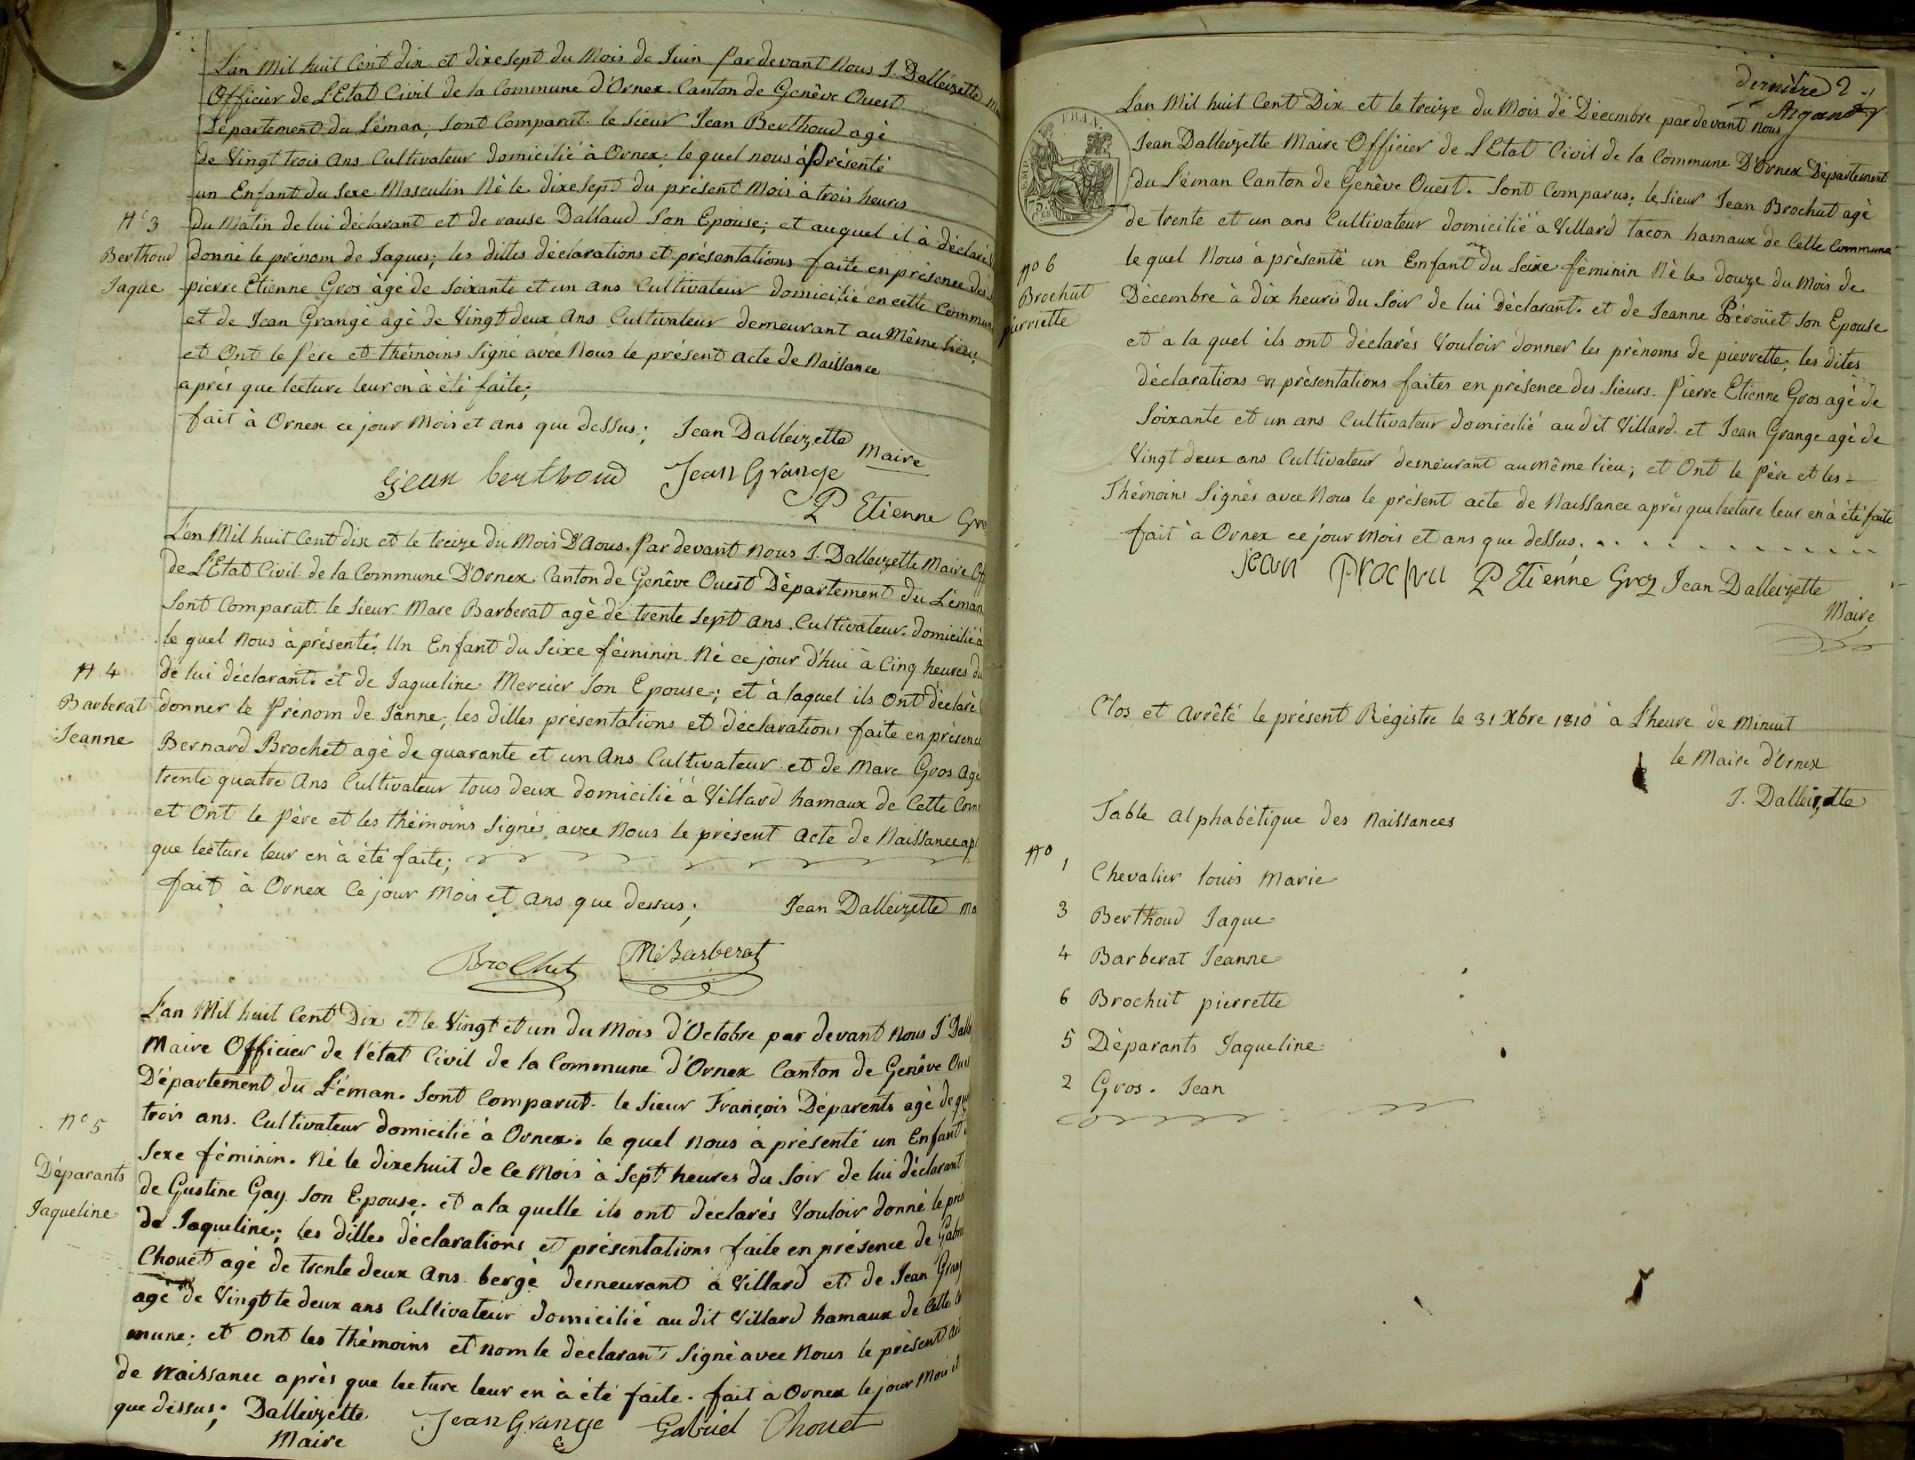 L'an Mil huit Cent dix et dixe sept du Mois de Juin Par devant Nous J. Dalleizette
Officier de L'Etat Civil de la Commune d'Ornex Canton de Genêve Ouest
Département du Léman, sont Comparut le sieur Jean Berthoud agè
de Vingt trois ans Cultivateur domicilié à Ornex; le quel nous à Présenté
un Enfant du Sexe Masculin Nè le dixe sept du présent Mois à trois heures
du Matin de lui déclarant et de Dallaud Son Epouse; et auquel il à déclaré
Nº 3
Berthoud
Jaque
donné le prénom de Jaques; les dittes déclarations et présentations faite en présence des
pierre Etienne Gros âgé de Soixante et un ans Cultivateur domicilié en cette Commune
et de Jean Grange agè de Vingt deux Ans Cultivateur demeurant au Même lieu;
et Ont le Père et thémoins Signé avec Nous le présent acte de Naissance
aprés que lecture leur en à été faite;
fait à Ornex ce jour Mois et ans que dessus; Jean Dalleizette
Maire
Jean berthoud Jean Grange
P Etienne
L'an Mil huit Cent dix et le treize du Mois D'Aous. Par devant Nous J. Dalleizette Maire
de L'Etat Civil de la Commune D'Ornex Canton de Genêve Ouest Département du Léman
Sont Comparut le Sieur Marc Barberat agè de trente Sept ans. Cultivateur. domicilié à
le quel Nous à présenté; Un Enfant du Seixe féminin Né ce jour d'hui à Cinq heures du
Nº 4
Barberat
Jeanne
de lui déclarant. et de Jaqueline Mercier Son Epouse; et à laquel ils Ont déclaré
donner le Prénom de Janne; les dittes présentations et déclarations faite en présence
Bernard Brochet agè de quarante et un Ans Cultivateur et de Marc Gros Agé
trente quatre Ans Cultivateur tous deux domicilié à Villard hamaux de Cette
et Ont le Père et les thémoins Signé, avec Nous le présent Acte de Naissance
que lecture leur en à été faite;
fait à Ornex Ce jour Mois et Ans que dessus; Jean Dalleizette
Brochet M Barberat
L'an Mil huit Cent Dix et le Vingt et un du Mois d'Octobre par devant Nous J
Maire Officier de l'état Civil de la Commune d'Ornex Canton de Genêve
Département du Léman. Sont Comparut. le Sieur François Déparents agè de
trois ans. Cultivateur domicilié à Ornex. le quel Nous à présenté un Enfant
nº 5
Déparants
Jaqueline
Sexe féminin. Né le dixe huit de Ce Mois à Sept heures du Soir de lui déclarant
de Gustine Gay Son Epouse. et a la quelle ils ont déclarés Vouloir donné le
de Jaqueline; les dittes déclarations et présentations faite en présence de
Chouet agé de trente deux Ans bergè demeurant à Villard et de Jean
agé de Vingt te deux ans Cultivateur domicilié au dit Villard hamaux de Cette
mune. et Ont les thémoins et nom le déclarant Signé avec Nous le présent
de Naissance après que lecture leur en à été faite. fait à Ornex le jour Mois
que dessus; Dalleizette Jean Grange Gabriel Chouet
Maire
dernière 2
Argand
L'an Mil huit Cent Dix et le treize du Mois de Décembre par devant nous
Jean Dalleizette Maire Officier de L'Etat Civil de la Commune D'Ornex Département
du Léman Canton de Genêve Ouest. Sont Comparus; le Sieur Jean Brochut agé
de trente et un ans Cultivateur domicilié à Villard tacon hamaux de Cette Commune
nº 6
Brochut
pierrette
le quel Nous à présenté un Enfant du Seixe féminin Né le douze du Mois de
Décembre à dix heures du Soir de lui Déclarant. et de Jeanne Pérouet Son Epouse
et a la quel ils ont déclarés Vouloir donner les prénoms de pierrette; les dites
déclarations et présentations faites en présence des Sieurs. Pierre Etienne Gros agè de
Soixante et un ans Cultivateur domicilié au dit Villard. et Jean Grange agè de
Vingt deux ans Cultivateur demeurant au même lieu; et Ont le Père et les
Thémoins Signés avec Nous le présent acte de Naissance aprés que lecture leur en à été faite
fait à Ornex ce jour Mois et ans que dessus.
Jean P Etienne Groz Jean Dalleizette
Maire
Clos et Arrêté le présent Régistre le 31 Xbre 1810 à l'heure de Minuit
le Maire d'Ornex
J. Dalleizette
Table Alphabétique des Naissances
Nº
1 Chevalier Louis Marie
3 Berthoud Jaque
4 Barberat Jeanne
6 Brochut pierrette
5 Déparants Jaqueline
2 Gros. Jean